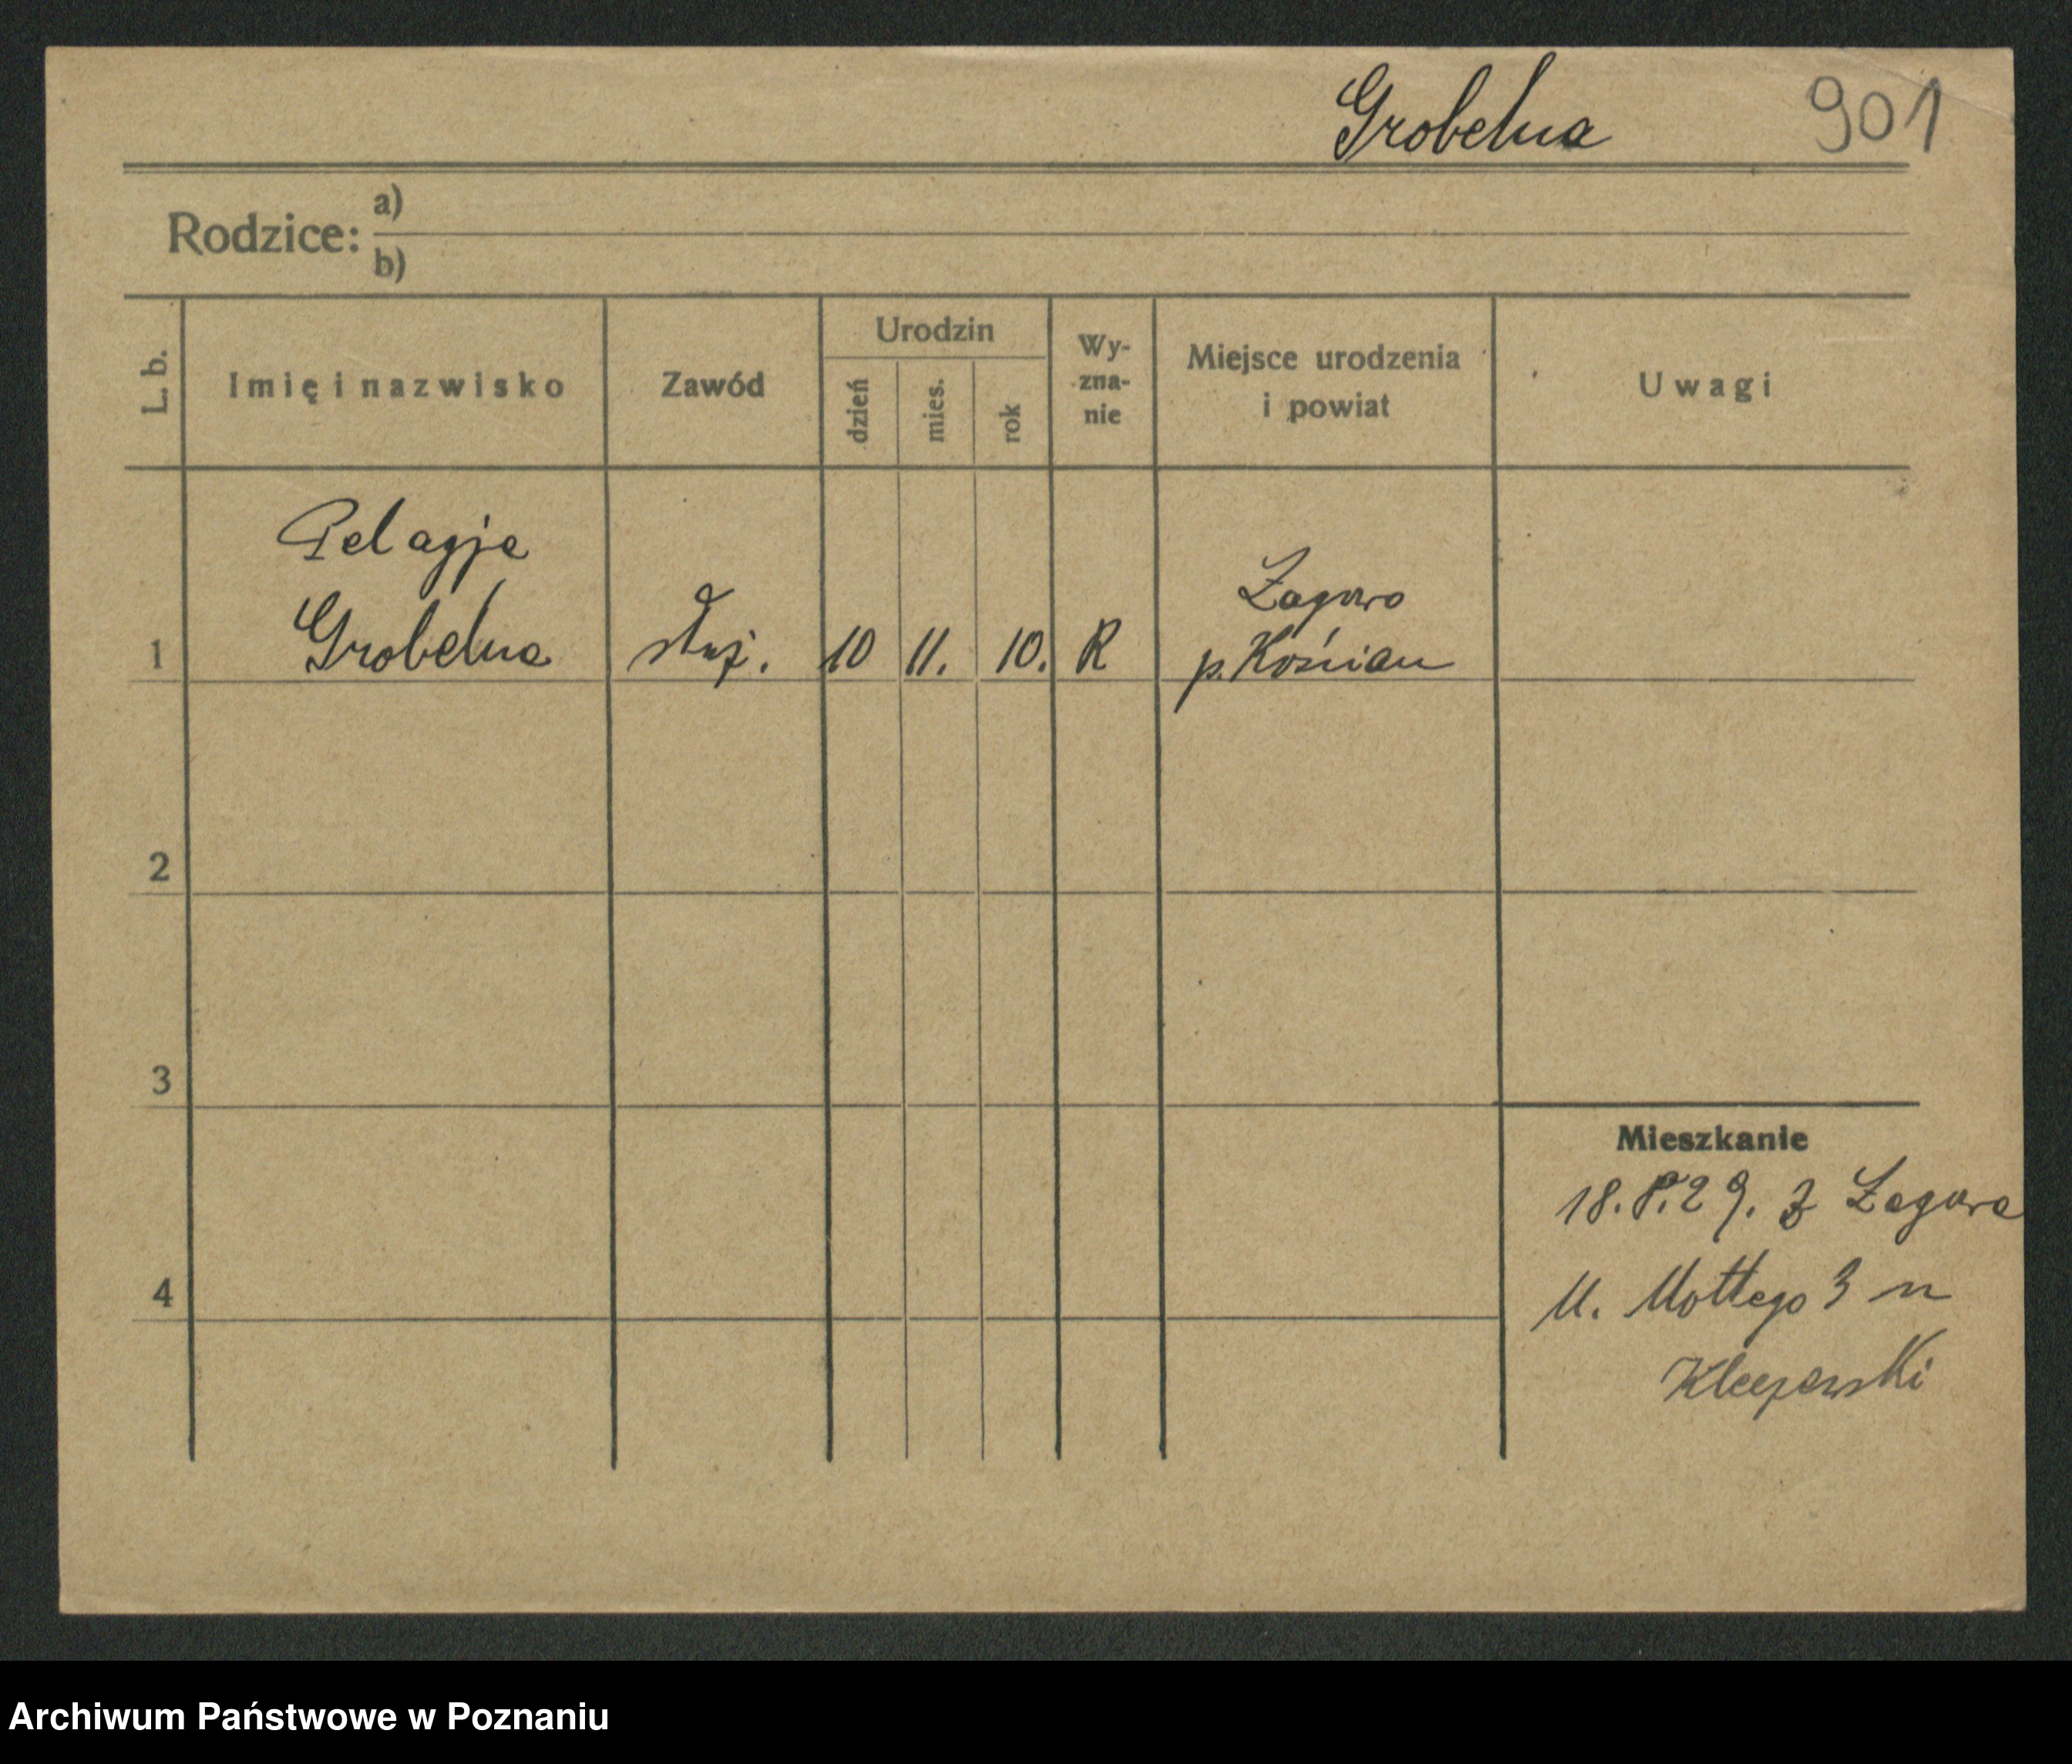 Grobelna 901
Rodzice: a)
b)
L. b. Imię i nazwisko Zawód Urodzin dzień mies. rok Wy-zna-nie Miejsce urodzenia i powiat Uwagi
Pelagja
Grobelna
1 służ. 10 11. 10. R
Zagowo
p. Kościan
2
3
4
Mieszkanie
18.8.29. z
Mottego 3 n
Archiwum Państwowe w Poznaniu